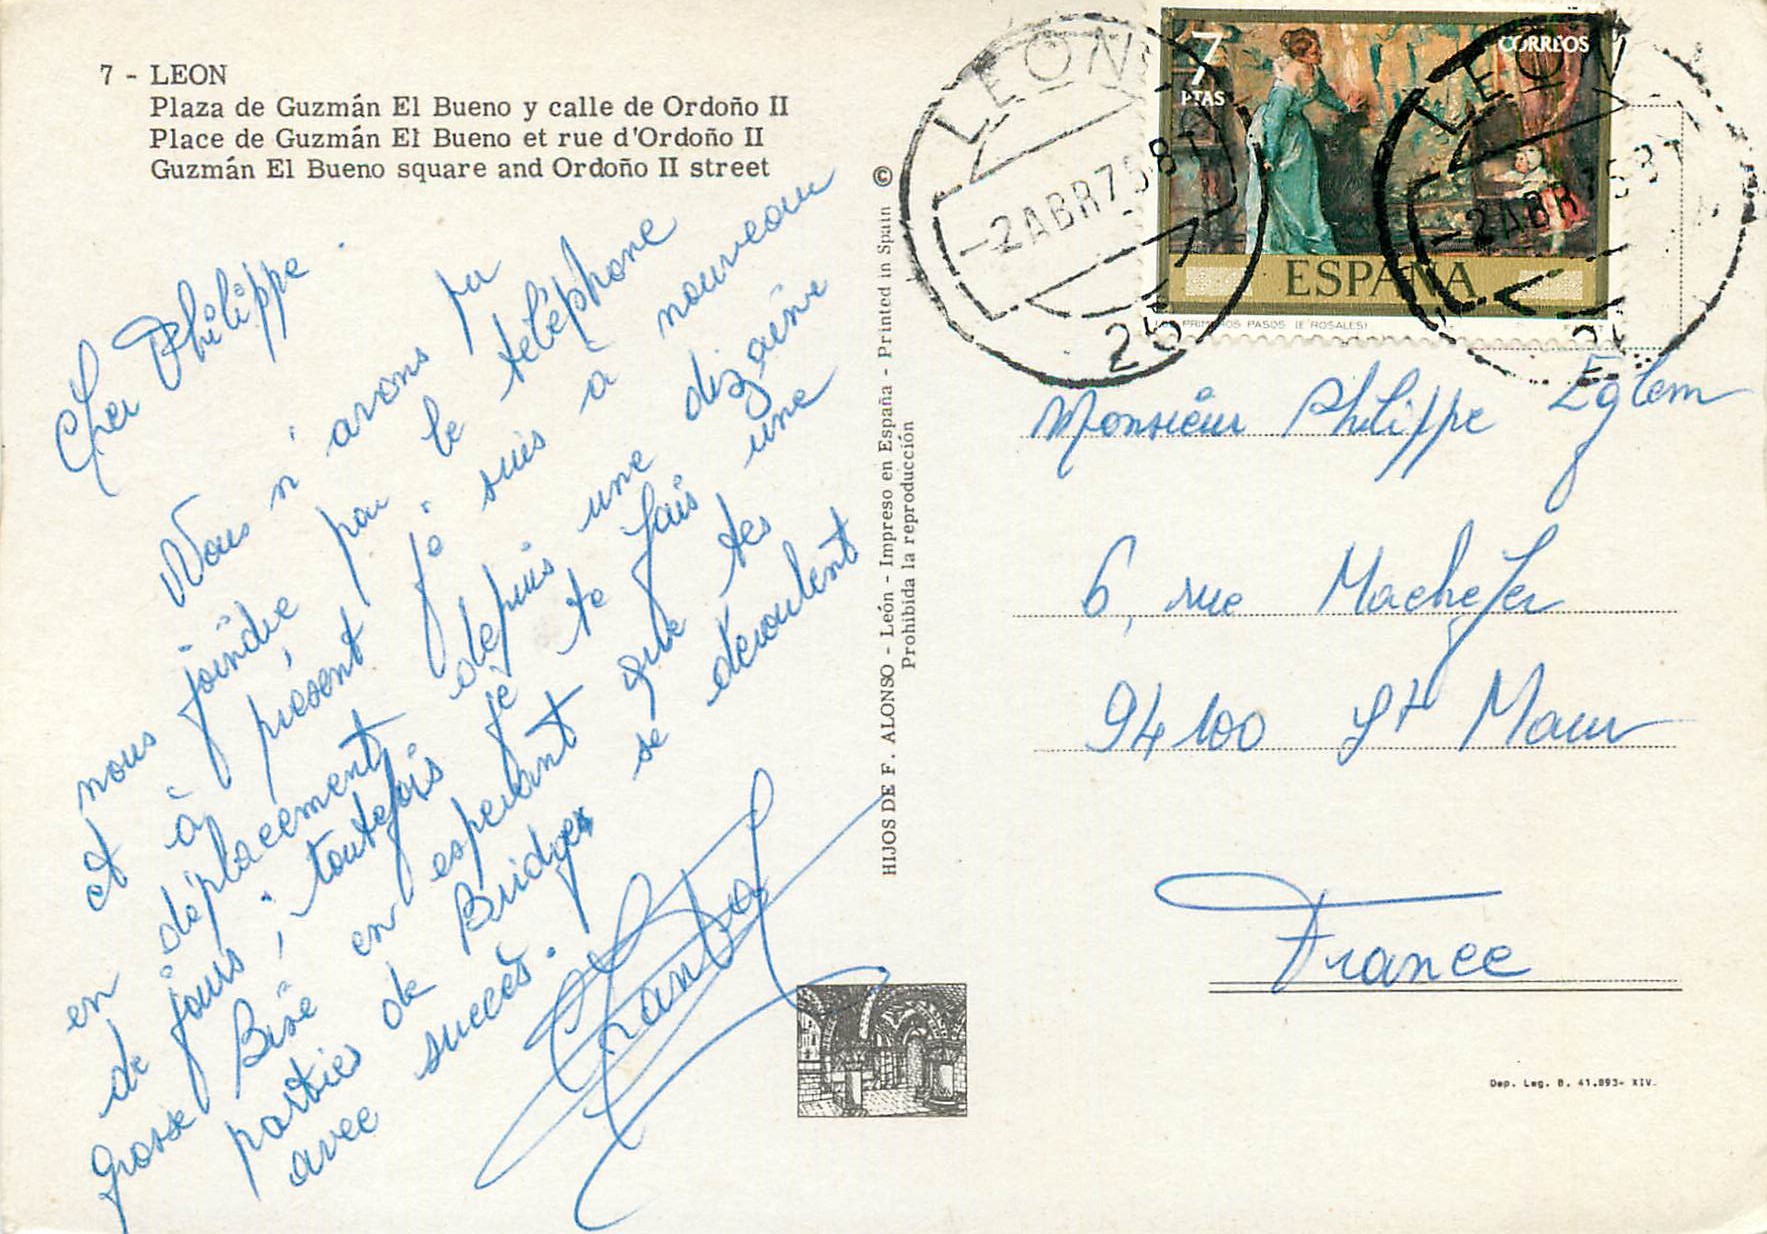 7 - LEON
Plaza de Guzmán El Bueno y calle de Ordoño II
Place de Guzmán El Bueno et rue d'Ordoño II
Guzmán El Bueno square and Ordoño II street
Cher Philippe
Nous n'avons pu
nous joindre par le téléphone
et à présent je suis à nouveau
en déplacement depuis une dizaine
de jours ; toutefois je te fais une
grosse Bise en esperant que tes
parties de Bridges se déroulent
avec succès.
Chantal
HIJOS DE F. ALONSO - León - Impreso en España - Printed in Spain ©
Prohibida la reproducción
LEON
-2ABR75 8T
25
7
PTAS
CORREOS
ESPAÑA
PRIMEROS PASOS (E ROSALES)
LEON
-2ABR75 8T
Monsieur Philippe Eglem
6, rue Machefer
94100 St Maur
France
Dep. Leg. B. 41.893- XIV.